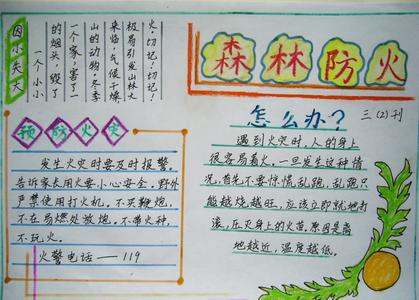 因小失大
一个小小
的烟头，毁了
一个家，害了一
山的动物。冬季
来临，气候干燥
极易引发山林大
火，切记！切记！
森林防火
三(2)刊
预防火灾
发生火灾时要及时报警。
告诉家长用火要小心安全。野外
严禁使用打火机。不买鞭炮，
不在易燃处放炮。不带火种，
不玩火。
火警电话——119
怎么办？
遇到火灾时，人的身上
很容易着火。一旦发生这种情
况，首先不要惊慌乱跑，乱跑只
能越烧越旺，应该立即就地打
滚，压灭身上的火苗，原因是离
地越近，温度越低。